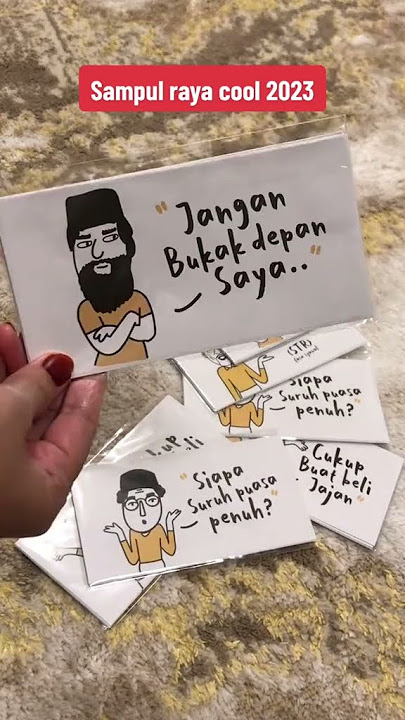 Sampul raya cool 2023
"Jangan
Bukak depan
Saya.."
(STR)
Siapa
Suruh puasa
penuh?"
Cukup
Buat beli
Jajan"
"Siapa
Suruh puasa
penuh?"